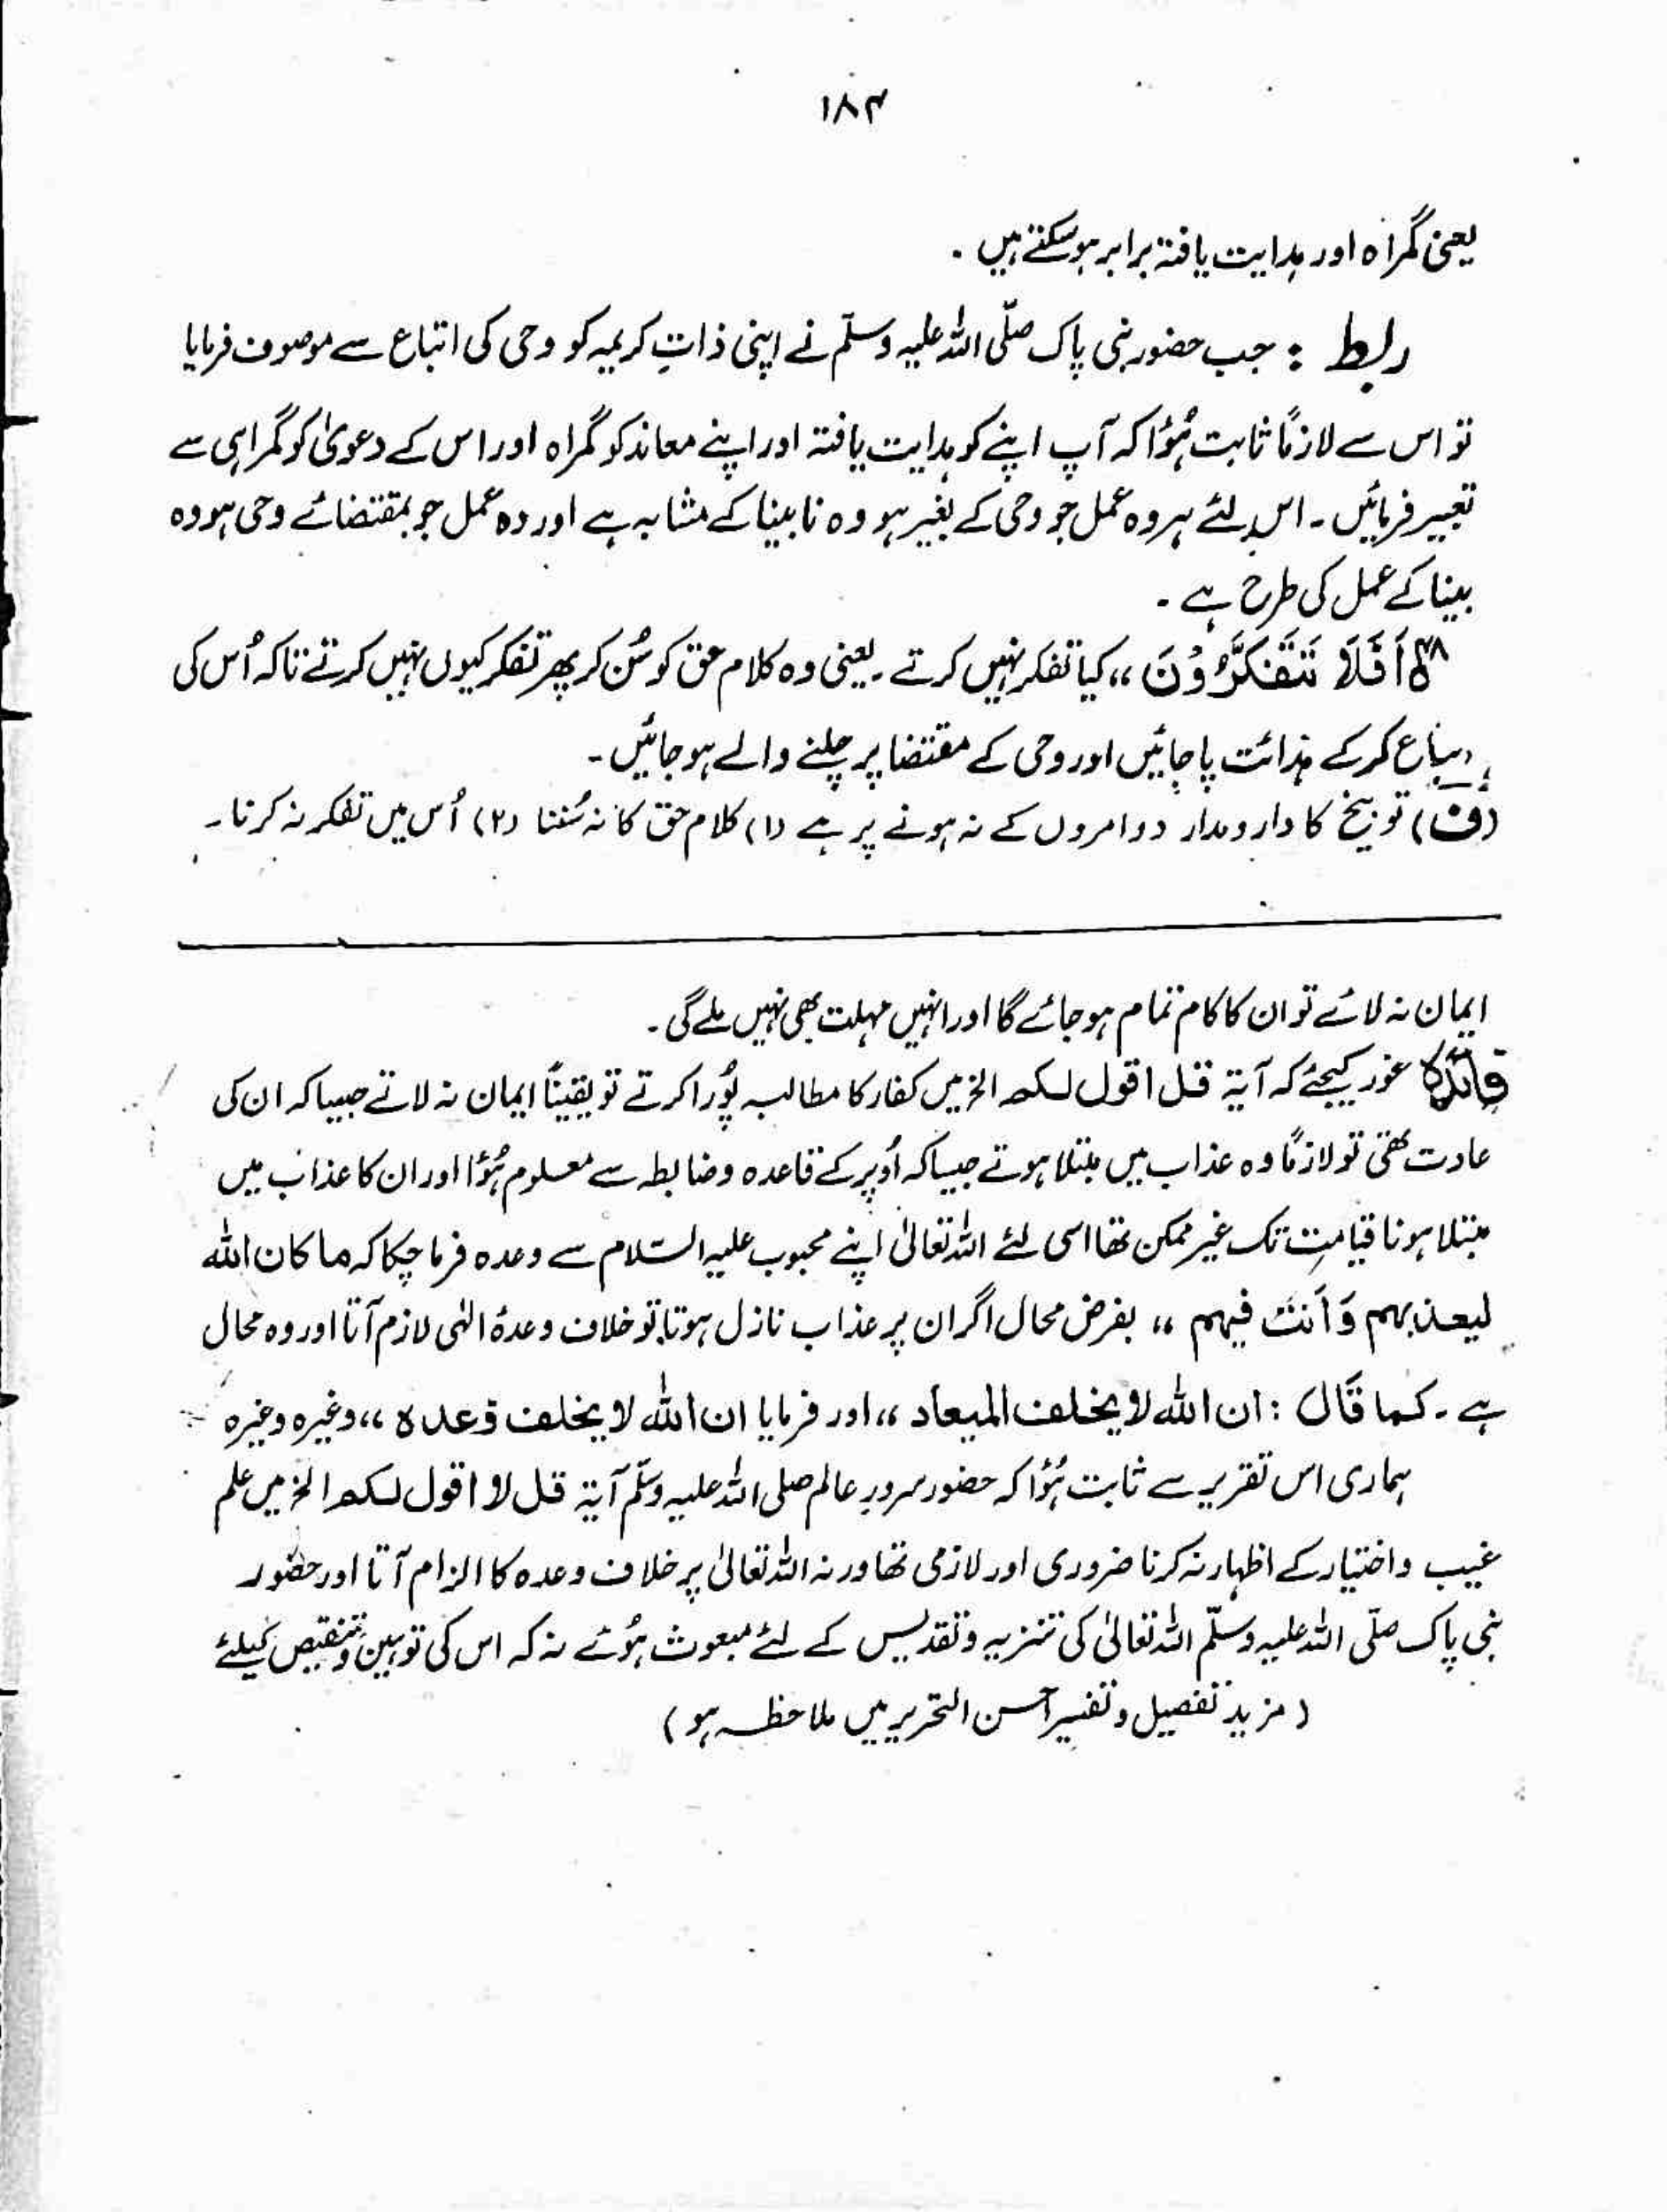 ۱۸۴
یعنی گمراہ اور ہدایت یافتہ برابر ہو سکتے ہیں ۔
ربط : جب حضور نبی پاک صلّی اللہ علیہ وسلّم نے اپنی ذاتِ کریمہ کو وحی کی اتباع سے موصوف فرمایا
تو اس سے لازماً ثابت ہُؤا کہ آپ اپنے کو ہدایت یافتہ اور اپنے معاند کو گمراہ اور اس کے دعویٰ کو گمراہی سے
تعبیر فرمائیں ۔ اس لئے ہر وہ عمل جو وحی کے بغیر ہو وہ نابینا کے مشابہ ہے اور وہ عمل جو بمقتضائے وحی ہو وہ
بینا کے عمل کی طرح ہے ۔
اَفَلَا تَتَفَکَّرُوْنَ ،، کیا تفکر نہیں کرتے ۔ یعنی وہ کلام حق کو سُن کر پھر تفکر کیوں نہیں کرتے تاکہ اُس کی
اتباع کر کے ہدائت پا جائیں اور وحی کے مقتضا پر چلنے والے ہو جائیں ۔
(ف) توبیخ کا دارومدار دو امروں کے نہ ہونے پر ہے (۱) کلام حق کا نہ سُننا (۲) اُس میں تفکر نہ کرنا ۔
ایمان نہ لائے تو ان کا کام تمام ہو جائے گا اور انہیں مہلت بھی نہیں ملے گی ۔
فائدہ غور کیجئے کہ آیۃ قل اقول لکم الخ میں کفار کا مطالبہ پُورا کرتے تو یقیناً ایمان نہ لاتے جیسا کہ ان کی
عادت تھی تو لازماً وہ عذاب میں مبتلا ہوتے جیسا کہ اُوپر کے قاعدہ وضابطہ سے معلوم ہُؤا اور ان کا عذاب میں
مبتلا ہونا قیامت تک غیر ممکن تھا اسی لئے اللہ تعالیٰ اپنے محبوب علیہ السّلام سے وعدہ فرما چکا کہ ما کان اللہ
لیعذبہم وَاَنتَ فیہم ،، بفرض محال اگر ان پر عذاب نازل ہوتا تو خلاف وعدۂ الٰہی لازم آتا اور وہ محال
ہے ۔ کما قَال : ان اللہ لا یخلف المیعاد ،، اور فرمایا ان اللہ لا یخلف وَعدہ ،، وغیرہ وغیرہ
ہماری اس تقریر سے ثابت ہُؤا کہ حضور سرورِ عالم صلی اللہ علیہ وسلّم آیۃ قل لا اقول لکم الخ میں علم
غیب واختیار کے اظہار نہ کرنا ضروری اور لازمی تھا ورنہ اللہ تعالیٰ پر خلاف وعدہ کا الزام آتا اور حضور
نبی پاک صلّی اللہ علیہ وسلّم اللہ تعالیٰ کی تنزیہ و تقدیس کے لئے مبعوث ہُوئے نہ کہ اس کی توہین و تنقیص کیلئے
( مزید تفصیل و تفسیر آحسن التحریر میں ملاحظہ ہو )